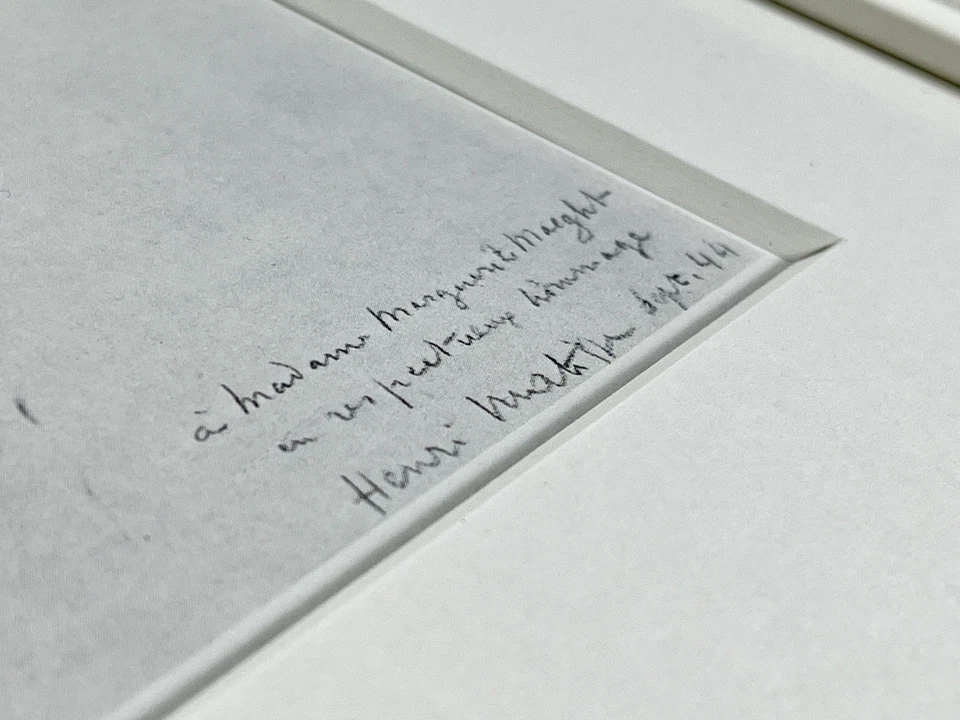 à Madame Marguerite Maeght
en respectueux hommage
Henri Matisse sept. 44